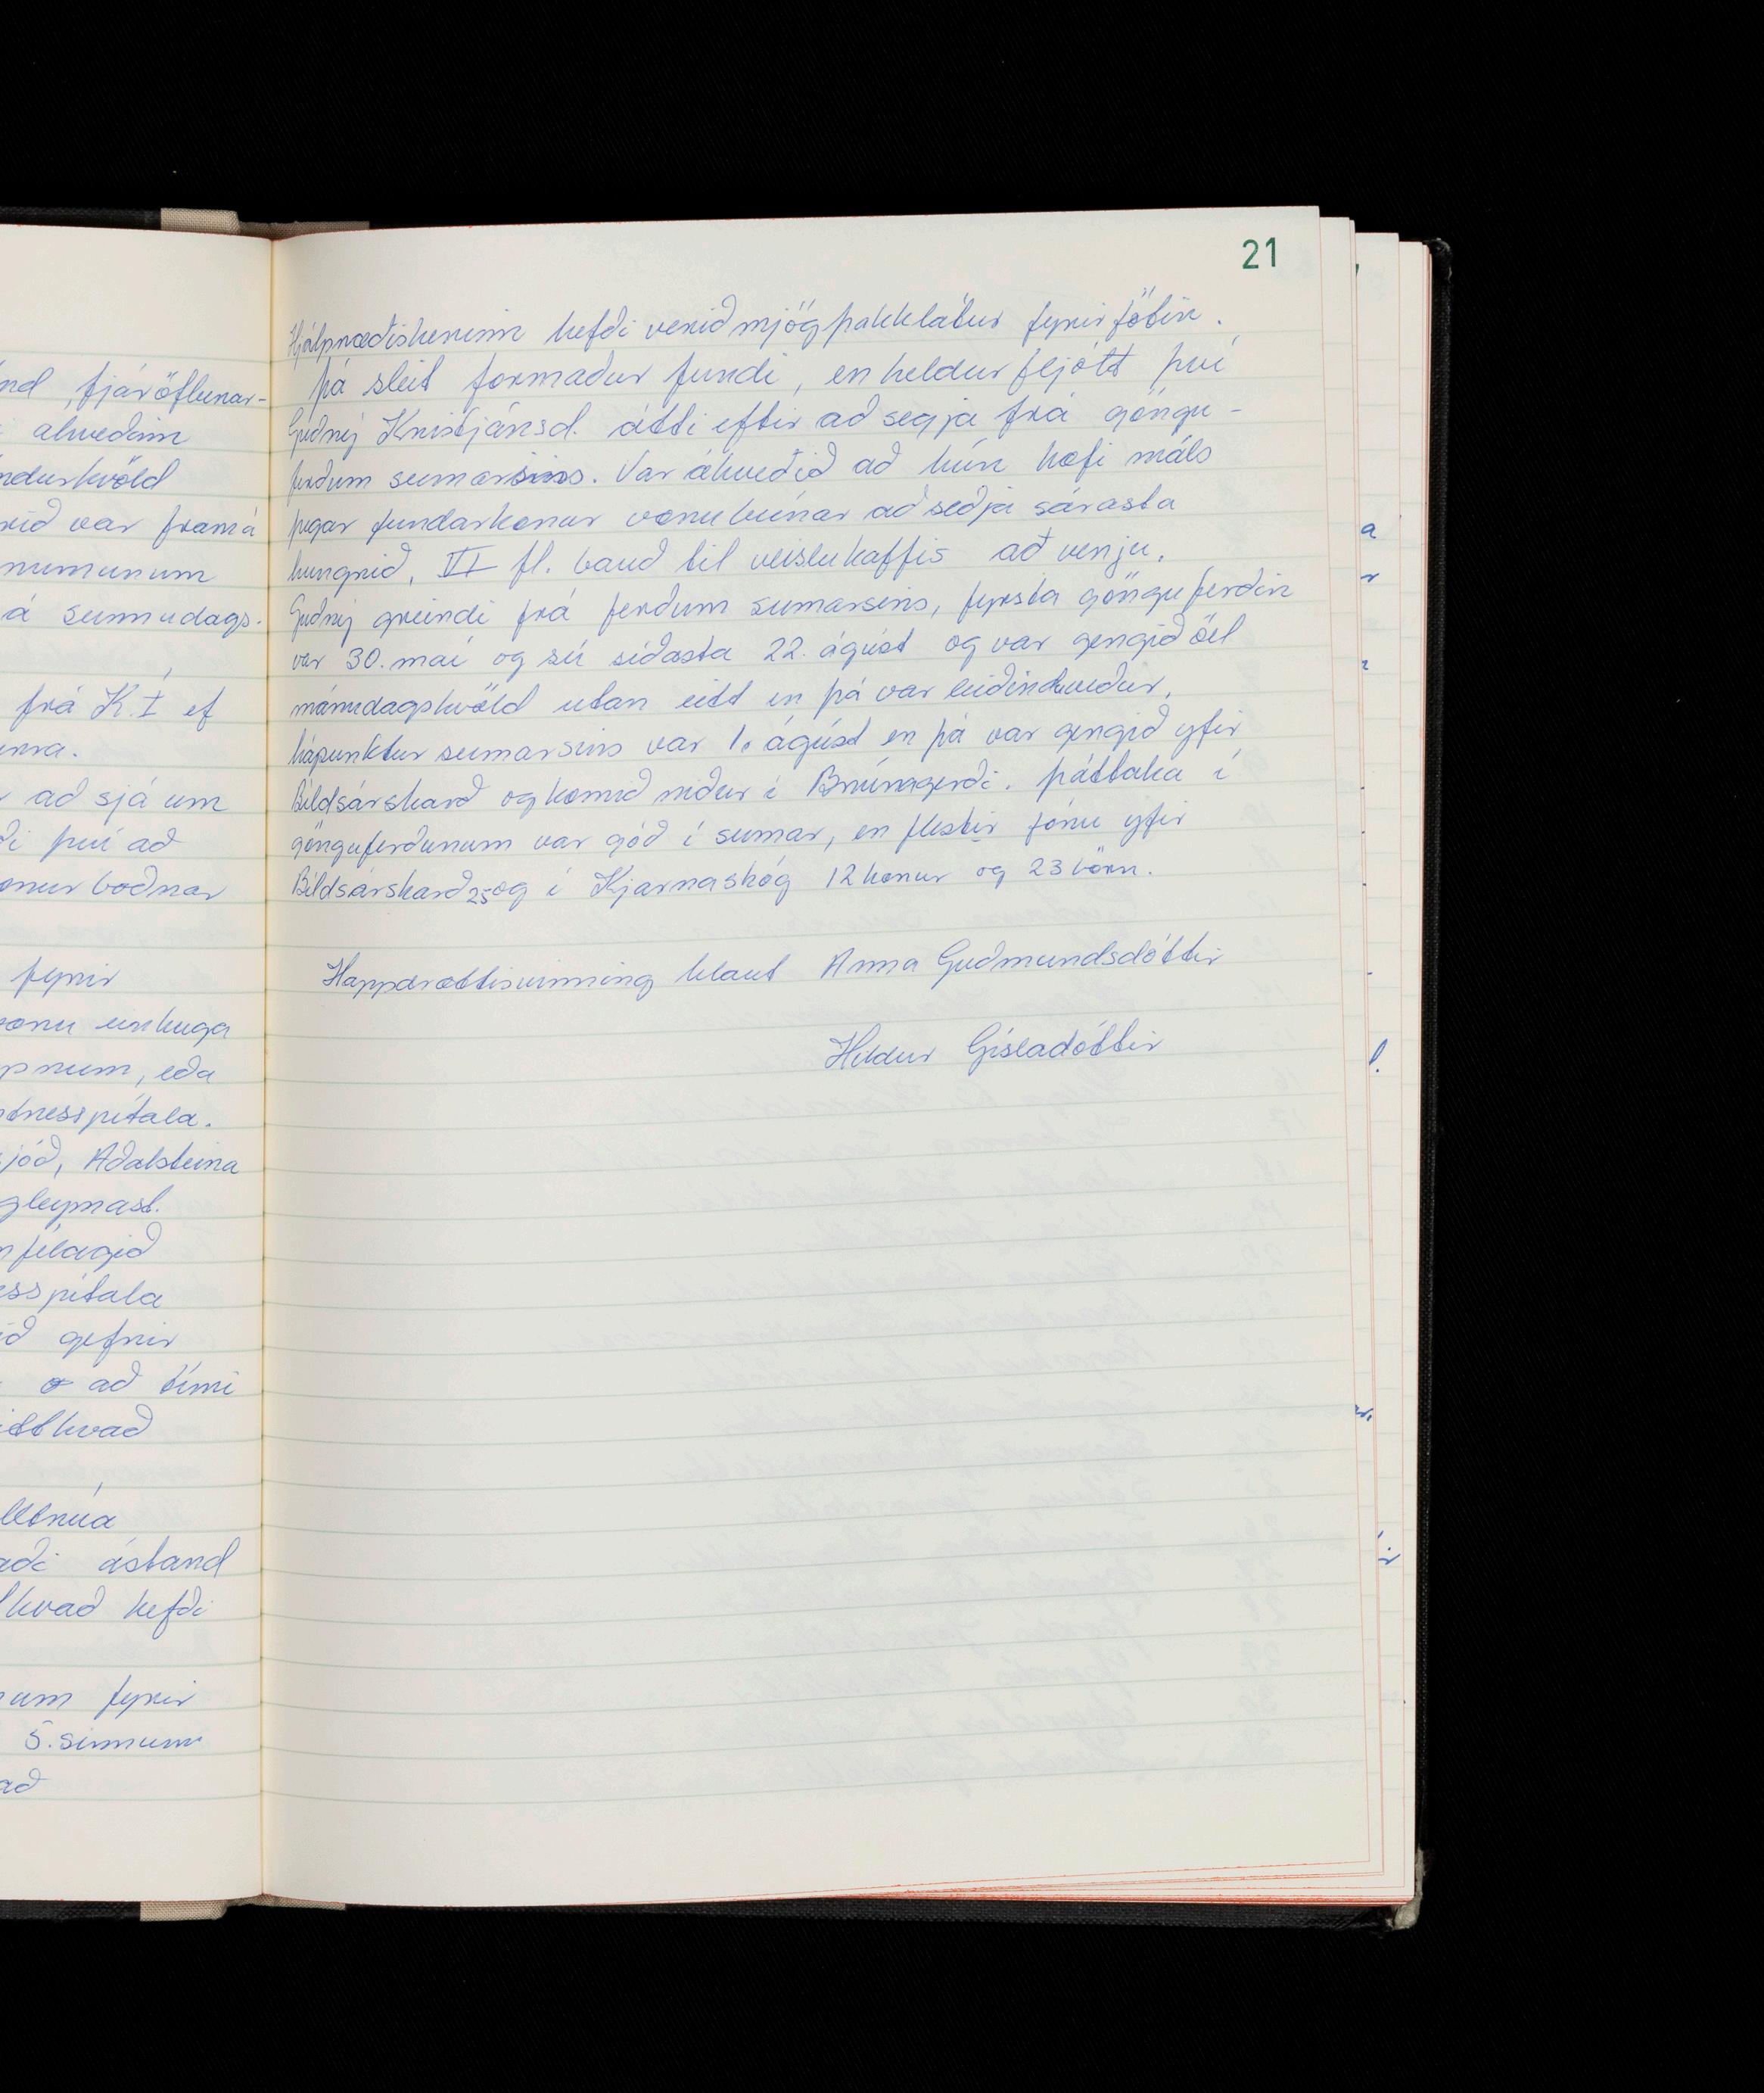 nd fjáröflunar-
ákveðinn
ndurkvöld
rið var framá
mununum
á sunnudags.
frá K.Í ef
inna.
að sjá um
ði því að
onur boðnar
fyrir
voru einhuga
pnum, eða
tnesspítala.
jóð, Aðalsteina
gleymast.
félagið
esspítala
ið gefnir
að tími
itthvað
lltrúa
aði ástand
hvað hefði
um fyrir
5. sinnum
að
21
Hjálpræðisherinn hefði verið mjög þakklátur fyrir fötin.
Þá sleit formaður fundi, en heldur fljótt því
Guðný Kristjánsd. átti eftir að segja frá göngu-
ferðum sumarsins. Var ákveðið að hún hæfi máls
þegar fundarkonur voru búnar að seðja sárasta
hungrið. VI fl. bauð til veislukaffis að venju.
Guðný greindi frá ferðum sumarsins, fyrsta gönguferðin
var 30. maí og sú síðasta 22. ágúst og var gengið öll
mánudagskvöld utan eitt en þá var leiðindaveður.
hápunktur sumarsins var 1. ágúst en þá var gengið yfir
Bíldsárskarð og komið niður í Brúnagerði. þátttaka í
gönguferðunum var góð í sumar, en flestir fóru yfir
Bíldsárskarð 25 og í Kjarnaskóg 12 konur og 23 börn.
Happdrættisvinning hlaut Anna Guðmundsdóttir
Hildur Gísladóttir